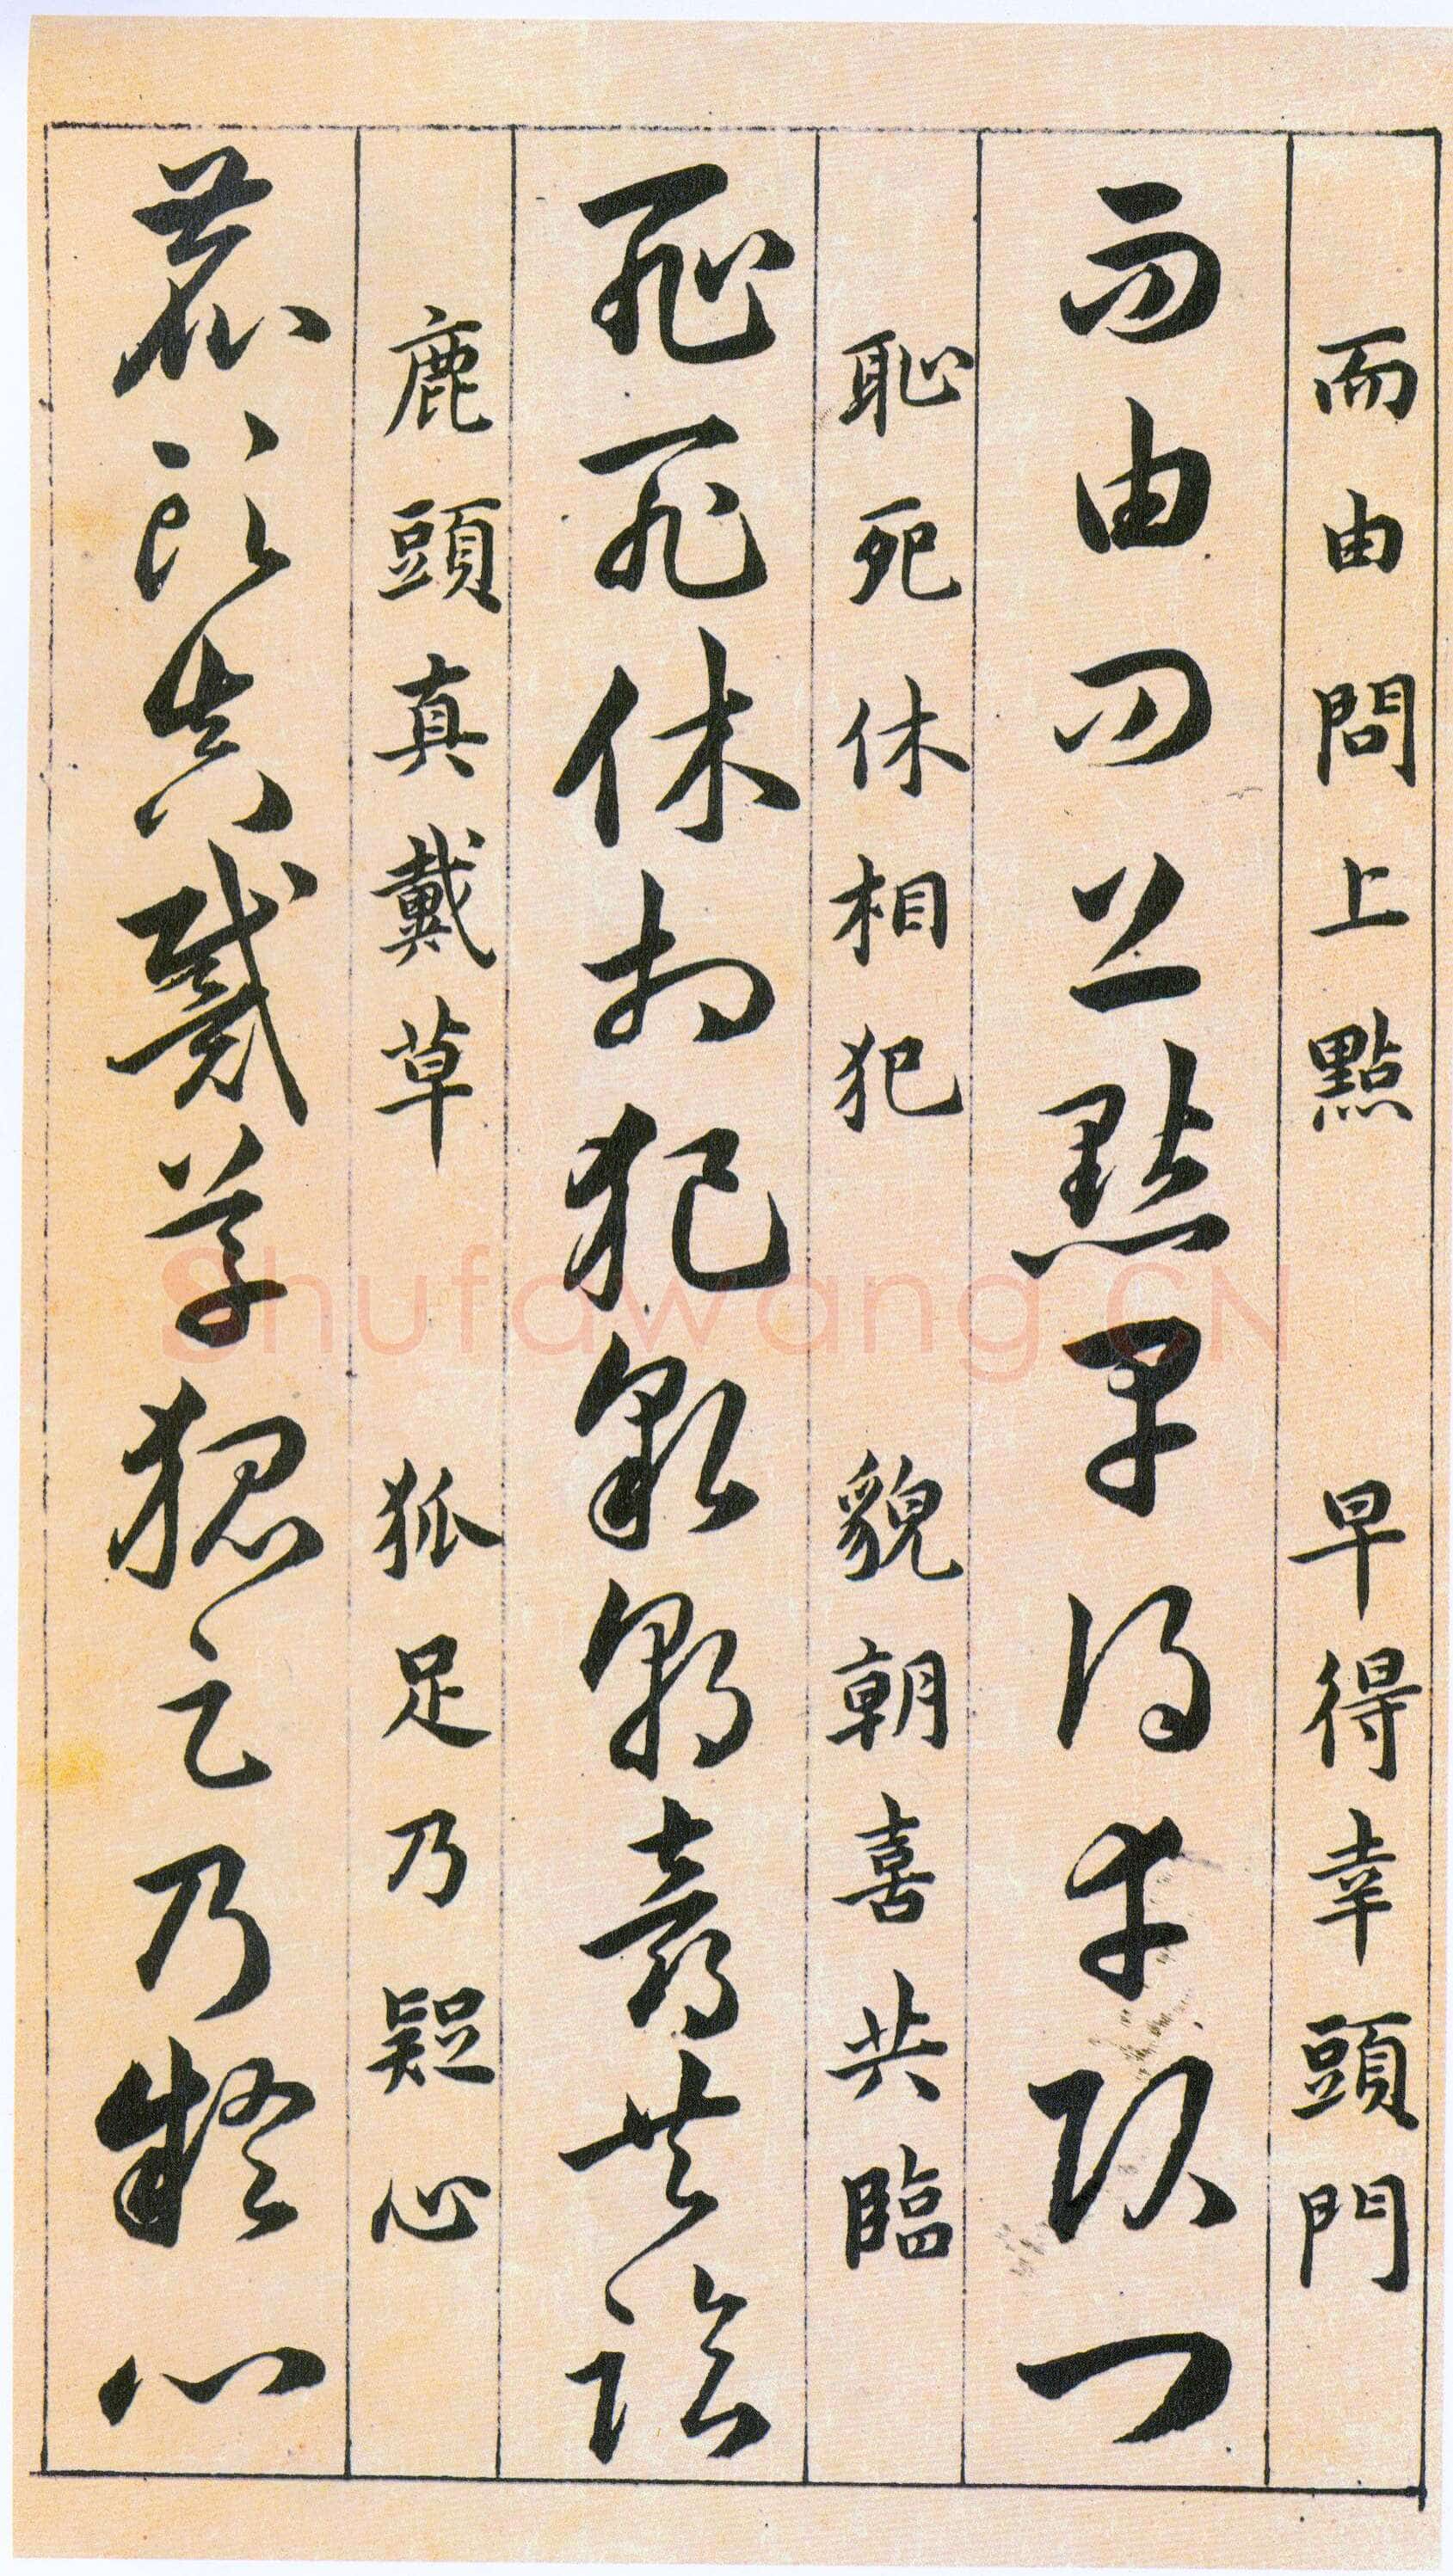 而由問上點 早得幸頭門
而由問上點早得幸頭門
恥死休相犯 貌朝喜共臨
恥死休相犯貌朝喜共臨
鹿頭真戴草 狐足乃疑心
鹿頭真戴草狐足乃疑心
Shufawang.CN